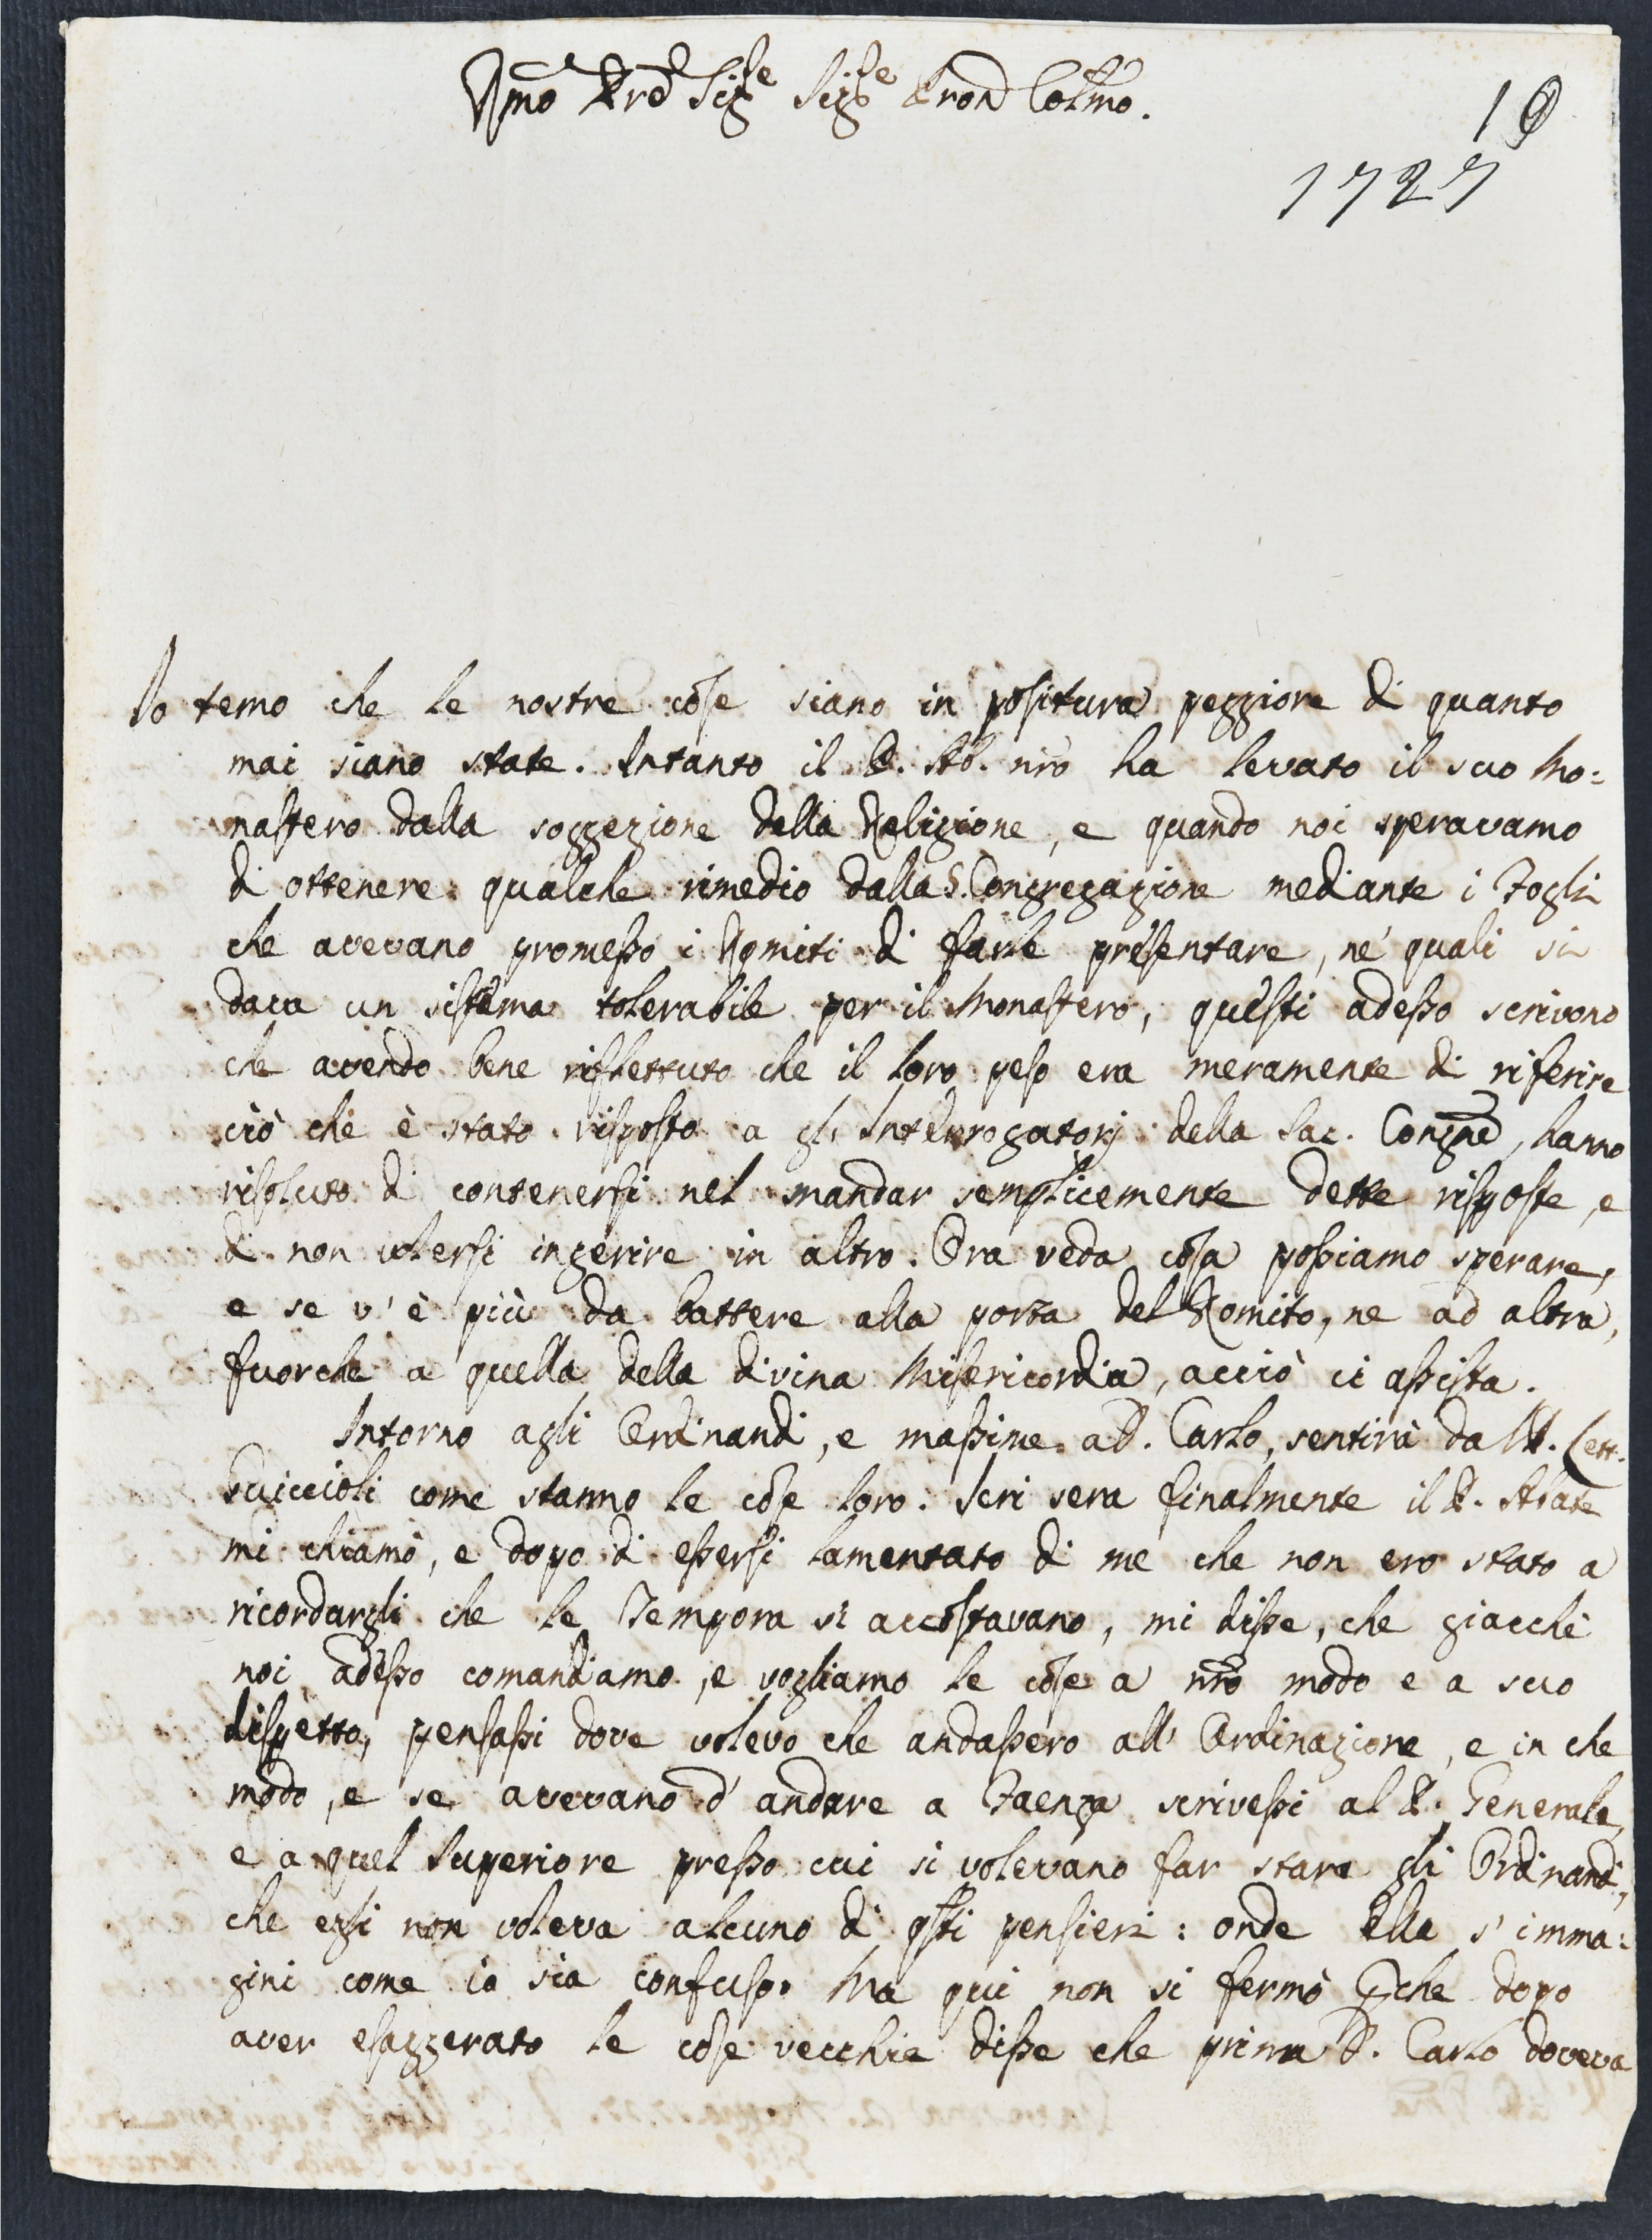 Illmo Prd Sigre Sigre Pron Colmo.
10
1727
Io temo che le nostre cose siano in positura peggiore di quanto
mai siano state. Intanto il P. Ab. nrõ ha levato il suo Mo=
nastero dalla soggezione della Religione, e quando noi speravamo
di ottenere qualche rimedio dalla S. Congregazione mediante i Fogli
che avevano promesso i Romiti di farle presentare, ne' quali si
dava un sistema tolerabile per il Monastero, questi adesso scrivono
che avendo bene riflettuto che il loro peso era meramente di riferire
ciò che è stato risposto a gli Interrogatorj della Sac. Congñe, hanno
risoluto di contenersi nel mandar semplicemente dette risposte, e
di non volersi ingerire in altro. Ora veda cosa possiamo sperare,
e se v'è più da battere alla porta del Romito, ne ad altra,
fuorche a quella della divina Misericordia, acciò ci assista.
Intorno agli Ordinandi, e massime a D. Carlo, sentirà dal P. Lett.
Guiccioli come stanno le cose loro. Ieri sera finalmente il P. Abate
mi chiamò, e dopo di essersi lamentato di me che non ero stato a
ricordargli che le Tempora si accostavano, mi disse, che giacchè
noi adesso comandiamo, e vogliamo le cose a nrõ modo e a suo
dispetto, pensassi dove volevo che andassero all' Ordinazione, e in che
modo, e se avevano d' andare a Faenza scrivessi al P. Generale,
e a quel Superiore presso cui si volevano far stare gli Ordinandi,
che egli non voleva alcuno di qsti pensieri: onde Ella s' imma=
gini come io sia confuso. Ma qui non si fermò pche dopo
aver esaggerato le cose vecchie disse che prima D. Carlo doveva